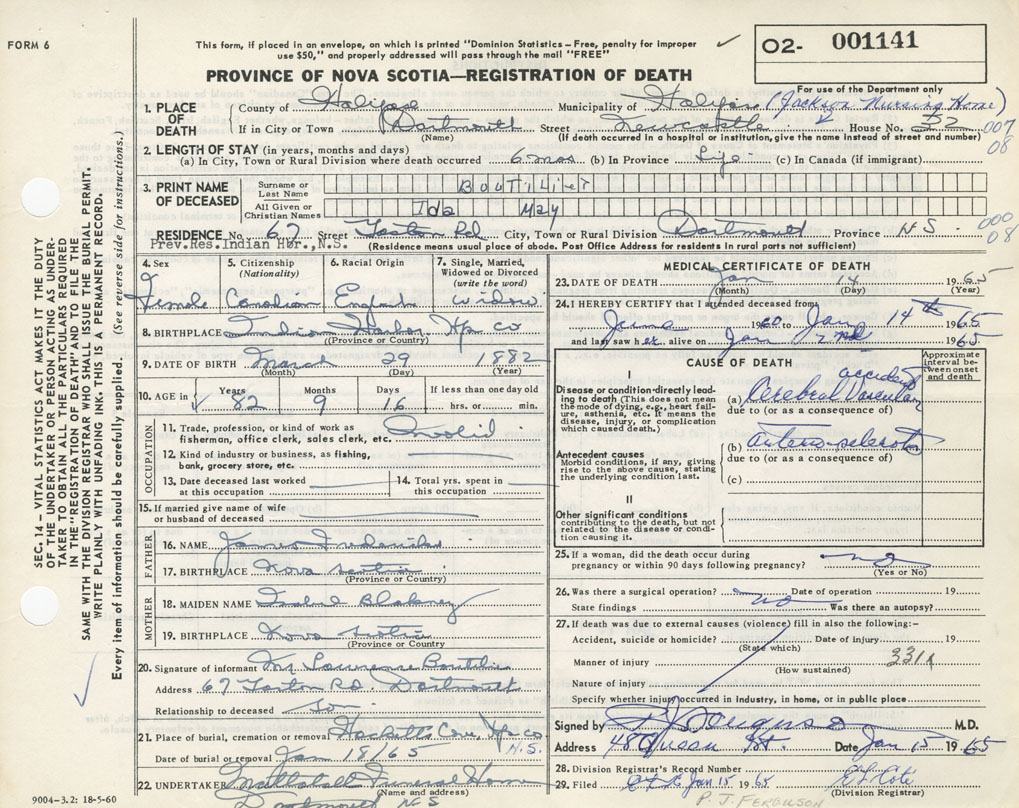 FORM 6
This form, if placed in an envelope, on which is printed "Dominion Statistics – Free, penalty for improper
use $50," and properly addressed will pass through the mail "FREE"
PROVINCE OF NOVA SCOTIA—REGISTRATION OF DEATH
O2- 001141
For use of the Department only
1. PLACE OF DEATH
County of Halifax Municipality of Halifax (Jackson Nursing Home)
If in City or Town Dartmouth Street Newcastle House No. 52 007
(Name) (If death occurred in a hospital or institution, give the name instead of street and number) 08
2. LENGTH OF STAY (in years, months and days)
(a) In City, Town or Rural Division where death occurred 6 mos (b) In Province Life (c) In Canada (if immigrant)
3. PRINT NAME OF DECEASED
Surname or Last Name Boutilier
All Given or Christian Names Ida May
RESIDENCE No. 67 Street Rd City, Town or Rural Division Dartmouth Province N S 000
Prev.Res.Indian Hbr., N.S. (Residence means usual place of abode. Post Office Address for residents in rural parts not sufficient) 08
4. Sex Female
5. Citizenship (Nationality) Canadian
6. Racial Origin England
7. Single, Married, Widowed or Divorced (write the word) widow
8. BIRTHPLACE Indian Harbor Hfx co
(Province or Country)
9. DATE OF BIRTH March 29 1882
(Month) (Day) (Year)
10. AGE in Years 82 Months 9 Days 16 If less than one day old hrs. or min.
OCCUPATION
11. Trade, profession, or kind of work as fisherman, office clerk, sales clerk, etc. Invalid
12. Kind of industry or business, as fishing, bank, grocery store, etc.
13. Date deceased last worked at this occupation
14. Total yrs. spent in this occupation
15. If married give name of wife or husband of deceased
FATHER
16. NAME James Fredericks
17. BIRTHPLACE Nova Scotia
(Province or Country)
MOTHER
18. MAIDEN NAME Blakney
19. BIRTHPLACE Nova Scotia
(Province or Country
20. Signature of informant Mr Lawrence Boutilier
Address 67 Rd. Dartmouth
Relationship to deceased son
21. Place of burial, cremation or removal Hacketts Cove, Hfx co N.S.
Date of burial or removal Jan 18/65
22. UNDERTAKER Mattatall Funeral Home
(Name and address)
Dartmouth NS
9004-3.2: 18-5-60
MEDICAL CERTIFICATE OF DEATH
23. DATE OF DEATH Jan 14 1965
(Month) (Day) (Year)
24. I HEREBY CERTIFY that I attended deceased from
June 1960 to Jan 14th 1965
and last saw h er alive on Jan 2nd 1965
CAUSE OF DEATH
Approximate interval between onset and death
I
Disease or condition directly leading to death (This does not mean the mode of dying, e.g., heart failure, asthenia, etc. It means the disease, injury, or complication which caused death.)
(a) Cerebral Vascular accident
due to (or as a consequence of)
Antecedent causes
Morbid conditions, if any, giving rise to the above cause, stating the underlying condition last.
(b) arterio-sclerotic
due to (or as a consequence of)
(c)
II
Other significant conditions
contributing to the death, but not related to the disease or condition causing it.
25. If a woman, did the death occur during
pregnancy or within 90 days following pregnancy? no
(Yes or No)
26. Was there a surgical operation? no Date of operation 19
State findings Was there an autopsy?
27. If death was due to external causes (violence) fill in also the following:-
Accident, suicide or homicide? Date of injury 19
(State which)
Manner of injury 331x
(How sustained)
Nature of injury
Specify whether injury occurred in industry, in home, or in public place
Signed by P J Ferguson M.D.
Address 48 Queen St. Date Jan 15 1965
28. Division Registrar's Record Number
29. Filed Jan 15 1965
(Division Registrar)
P. J. FERGUSON
SEC. 14 – VITAL STATISTICS ACT MAKES IT THE DUTY
OF THE UNDERTAKER OR PERSON ACTING AS UNDER-
TAKER TO OBTAIN ALL THE PARTICULARS REQUIRED
IN THE "REGISTRATION OF DEATH" AND TO FILE THE
SAME WITH THE DIVISION REGISTRAR WHO SHALL ISSUE THE BURIAL PERMIT.
WRITE PLAINLY WITH UNFADING INK. THIS IS A PERMANENT RECORD.
Every item of information should be carefully supplied. (See reverse side for instructions.)